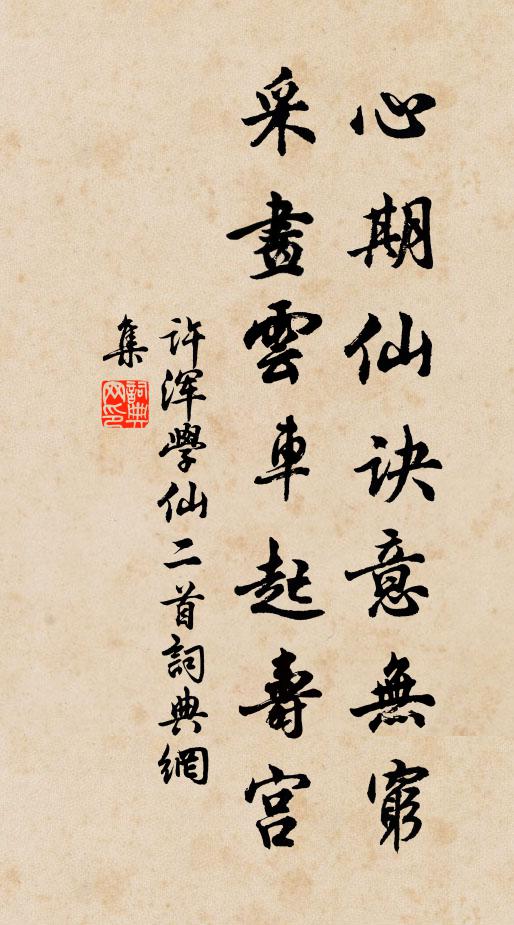 心期仙诀意無窮
采畫雲車起壽宫
许浑學仙二首詞典網
集
詞典
网印